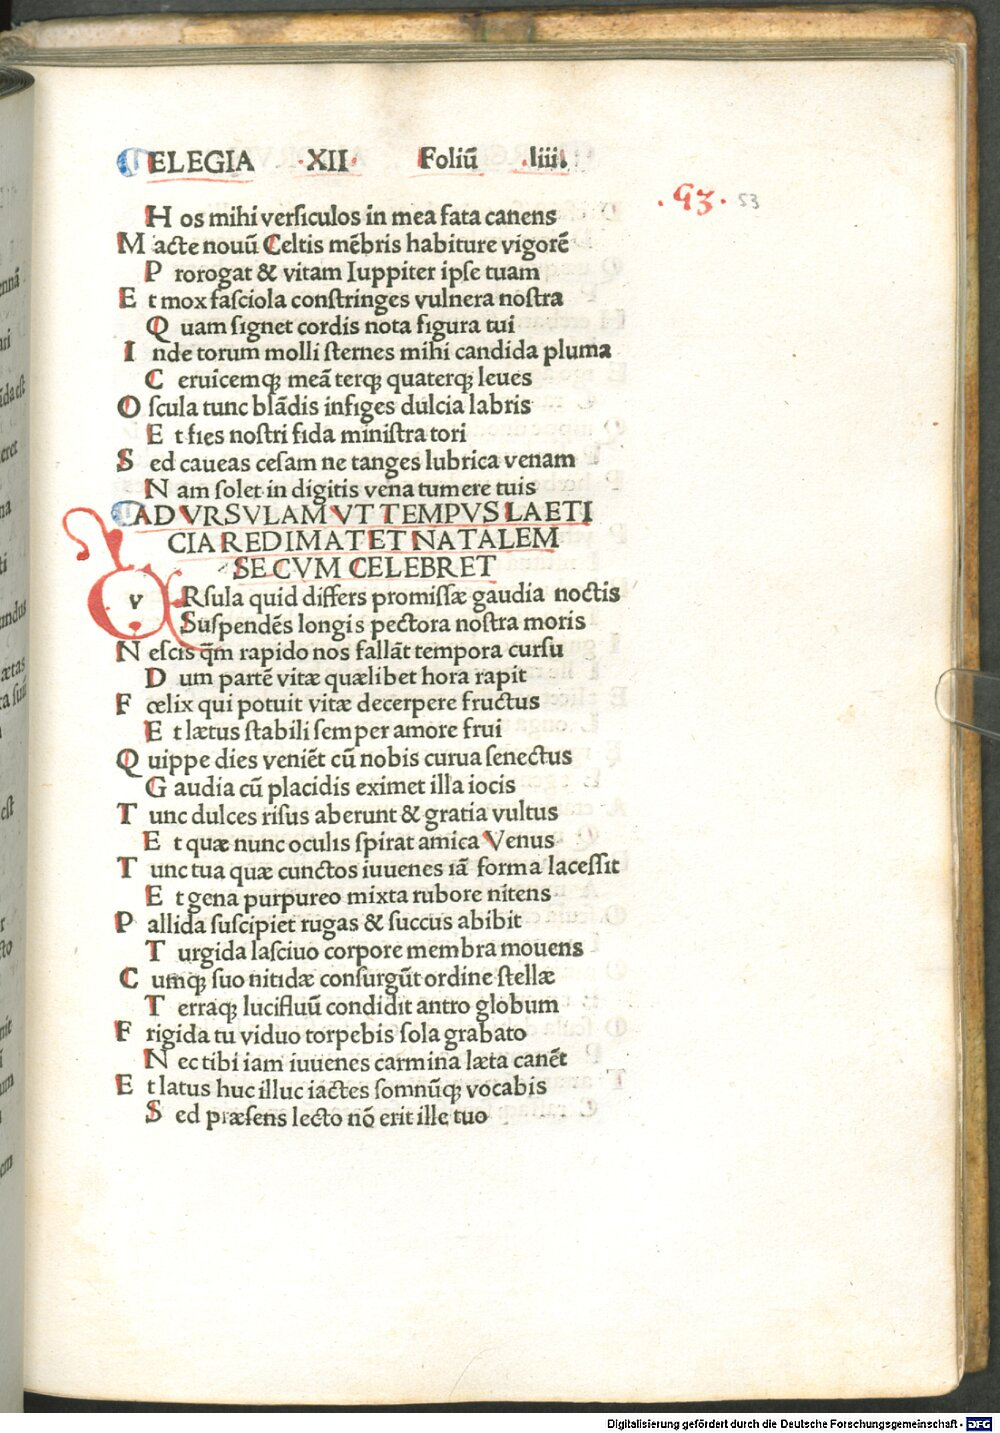 ELEGIA ·XII· Foliũ .liiii.
.93. 53
H os mihi verſiculos in mea fata canens
M acte nouũ Celtis mẽbris habiture vigorẽ
P rorogat & vitam Iuppiter ipſe tuam
E t mox faſciola conſtringes vulnera noſtra
Q uam ſignet cordis nota figura tui
I nde torum molli ſternes mihi candida pluma
C eruicemqꝫ meã terqꝫ quaterqꝫ leues
O ſcula tunc blãdis infiges dulcia labris
E t fies noſtri fida miniſtra tori
S ed caueas ceſam ne tanges lubrica venam
N am ſolet in digitis vena tumere tuis
AD VRSVLAM VT TEMPVS LAETI
CIA REDIMAT ET NATALEM
SECVM CELEBRET
v Rſula quid differs promiſſæ gaudia noctis
Suſpendẽs longis pectora noſtra moris
N eſcis q̃m rapido nos fallãt tempora curſu
D um partẽ vitæ quælibet hora rapit
F œlix qui potuit vitæ decerpere fructus
E t lætus ſtabili ſemper amore frui
Q uippe dies veniẽt cũ nobis curua ſenectus
G audia cũ placidis eximet illa iocis
T unc dulces riſus aberunt & gratia vultus
E t quæ nunc oculis ſpirat amica Venus
T unc tua quæ cunctos iuuenes iã forma laceſſit
E t gena purpureo mixta rubore nitens
P allida ſuſcipiet rugas & ſuccus abibit
T urgida laſciuo corpore membra mouens
C umqꝫ ſuo nitidæ conſurgũt ordine ſtellæ
T erraqꝫ lucifluũ condidit antro globum
F rigida tu viduo torpebis ſola grabato
N ec tibi iam iuuenes carmina læta canẽt
E t latus huc illuc iactes ſomnũqꝫ vocabis
S ed præſens lecto nõ erit ille tuo
Digitalisierung gefördert durch die Deutsche Forschungsgemeinschaft - DFG